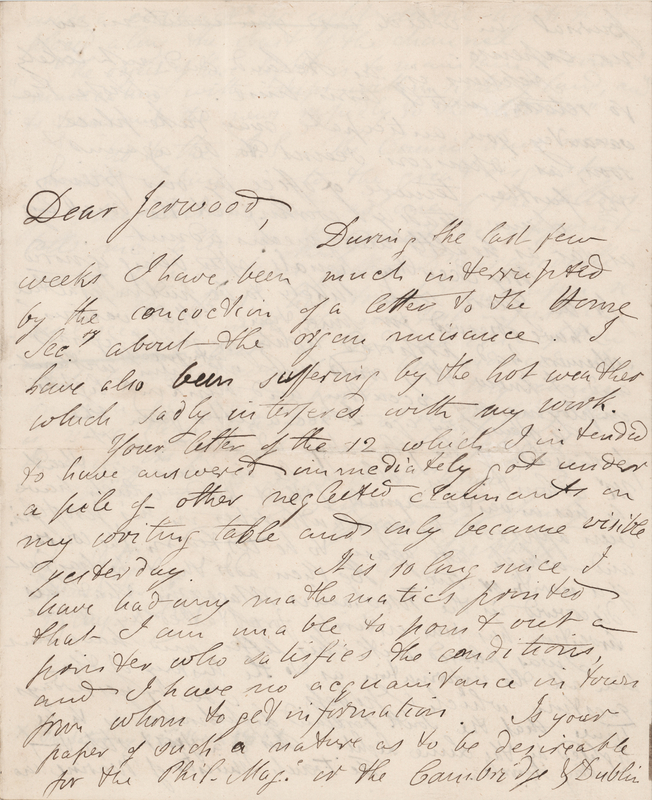 Dear Jerwood,
During the last few
weeks I have been much interrupted
by the concoction of a letter to the Home
Sec.ry about the organ nuisance. I
have also been suffering by the hot weather
which sadly interferes with my work.
Your letter of the 12 which I intended
to have answered immediately got under
a pile of other neglected claimants on
my writing table and only became visible
yesterday. It is so long since I
have had any mathematics printed
that I am unable to point out a
printer who satisfies the conditions,
and I have no acquaintance in town
from whom to get information. Is your
paper of such a nature as to be desireable
for the Phil. Mag. or the Cambridge & Dublin